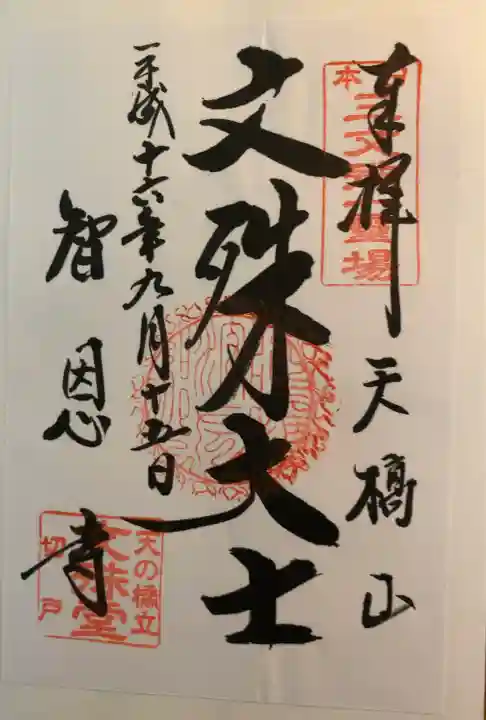 奉拝 天橋山
日本三文殊霊場
文殊大士
平成十六年九月十五日
智恩寺
天の橋立
文殊堂
切戸